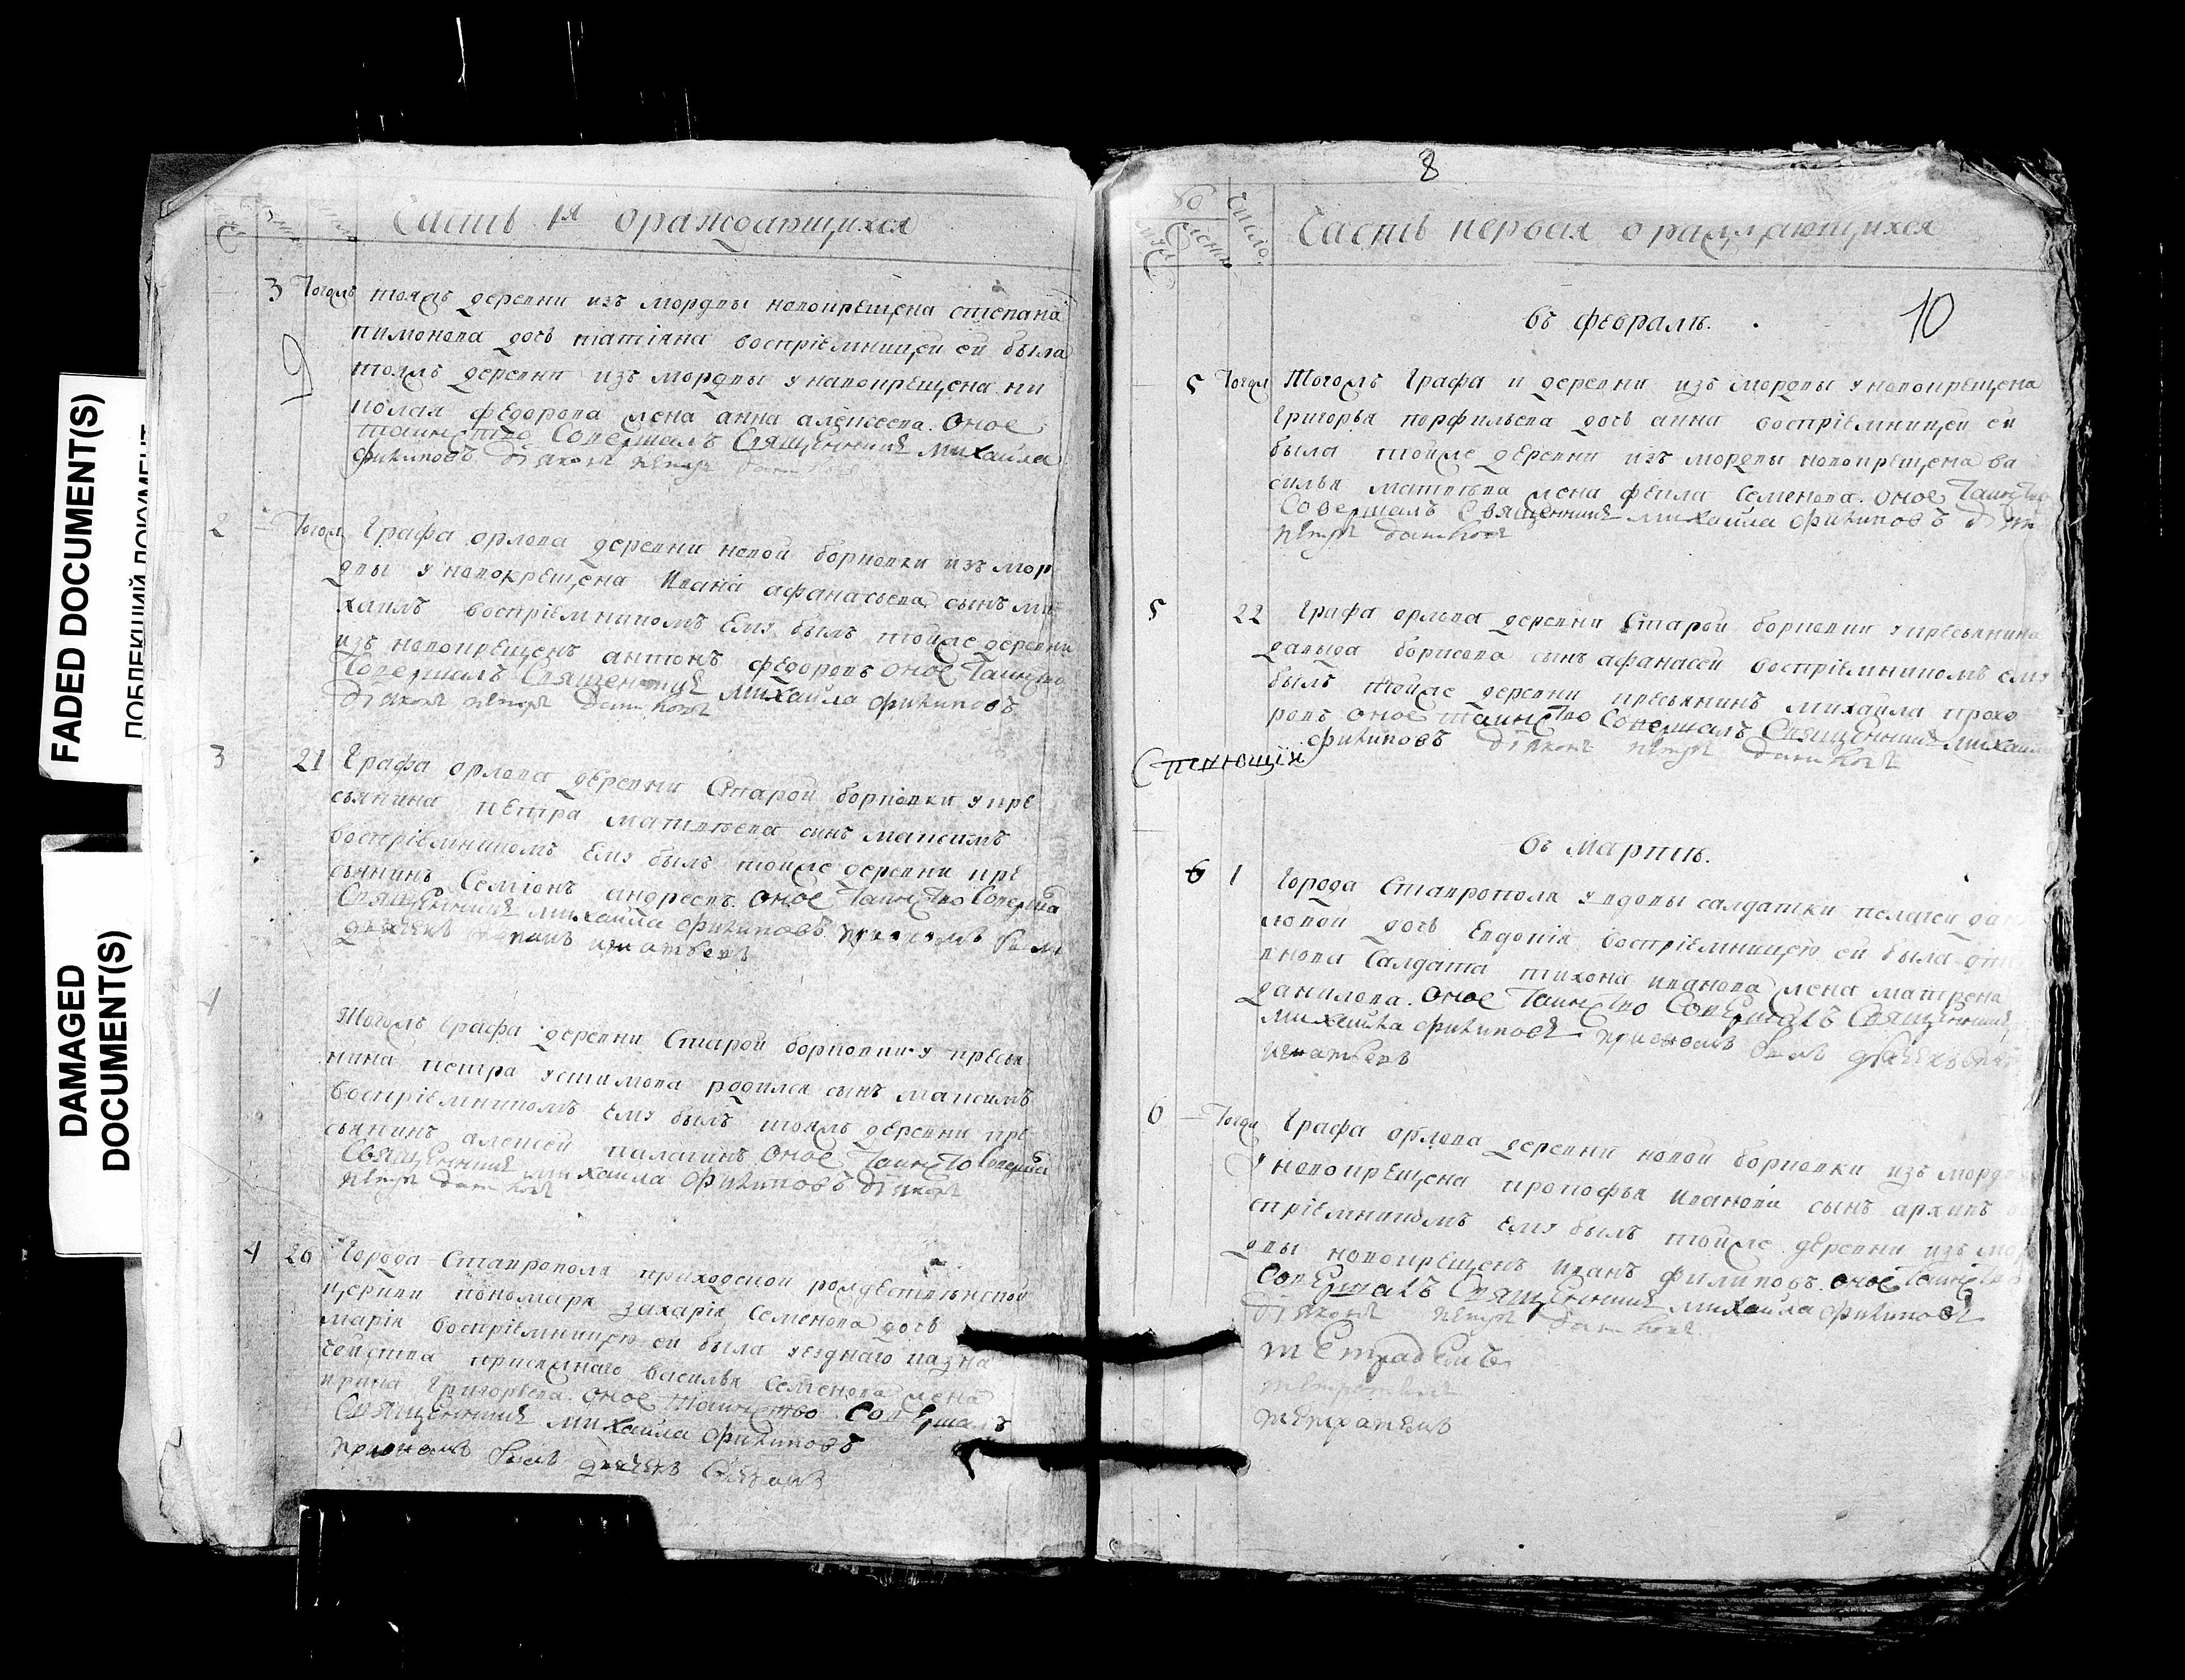 FADED DOCUMENT(S)
ПОБЛЕКШИЙ ДОКУМЕНТ
DAMAGED
DOCUMENT(S)
Часть 1я ораждающихся
3 Тогожъ тояжъ деревни изъ мордвы новокрещена степана
пимонова дочь татіяна воспріемницей ей была
тояжъ деревни изъ мордвы у новокрещена ни
колая федорова жена анна алексеева. Оное
таинство Совершалъ Священникъ михайла
филиповъ діяконъ петръ
2 — Тогож Графа орлова деревни новой борковки изъ мор
двы у новокрещена Ивана афанасьева сынъ ми
хаилъ воспріемникомъ ему былъ тойже деревни
изъ новокрещенъ антонъ федоровъ оное таинство
Совершалъ Священникъ михайла филиповъ
діяконъ петръ
3 21 Графа орлова деревни Старой борковки у кре
стьянина петра матвеева сынъ максимъ
воспріемникомъ ему былъ тойже деревни кре
стьянинъ Семіонъ андреевъ. Оное таинство Соверша
Священникъ михайла филиповъ
дьячекъ игнатьевъ
4
Тогожъ Графа деревни Старой борковки у кресья
нина петра устимова родился сынъ максимъ
воспріемникомъ ему былъ тояжъ деревни кре
стьянинъ алексей палагинъ Оное таинство Соверша
Священникъ михаила филиповъ діяконъ
петръ
4 20 Города Ставрополя приходской рождественской
церкви пономаря захарія Семенова дочь
марія воспріемницею ей была уезднаго казна
чейства присяжнаго василья Семенова жена
ирина Григорьева. Оное таинство Совершалъ
Священникъ михайла филиповъ
при ономъ былъ дьячекъ
8
Часть первая ораждающихся
10
въ февралѣ.
5 Тогож Тогожъ Графа и деревни изъ мордвы у новокрещена
Григорья порфильева дочь анна воспріемницей ей
была тойже деревни изъ мордвы новокрещена ва
силья матвѣева жена фекла Семенова. Оное таинство
Совершалъ Священникъ михайла филиповъ
петръ
5 22 Графа орлова деревни Старой борковки у кресьянина
давыда борисова сынъ афанасей воспріемникомъ ему
былъ тойже деревни кресьянинъ михаила прохо
ровъ оное таинство Совершалъ Священникъ михаила
филиповъ діяконъ петръ
въ мартѣ.
6 1 Города Ставрополя у вдовы салдатки пелагеи дан
ловой дочь Евдокія воспріемницею ей была
вного Салдата тихона иванова жена матрена
данилова. Оное таинство Совершалъ Священникъ
михайла филиповъ при ономъ былъ дьячекъ
игнатьевъ
6 — Тогож Графа орлова деревни новой борковки изъ мордв
у новокрещена прокофья иванова сынъ архипъ во
спріемникомъ ему былъ тойже деревни изъ мор
двы новокрещенъ иванъ филиповъ. оное таинство
Совершалъ Священникъ михайла филиповъ
діяконъ петръ